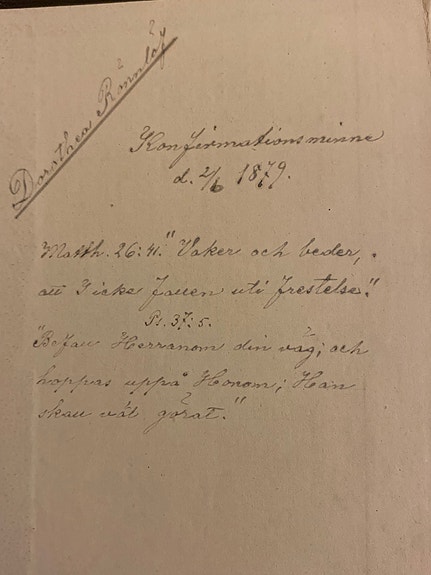 Dorothea Rönnlöf
Konfirmationsminne
d. 2/6 1879.
Matth. 26:41. "Vaker och beder,
att I icke fallen uti frestelse."
Ps. 37:5.
"Befall Herranom din väg; och
hoppas uppå Honom; Han
skall väl görat."